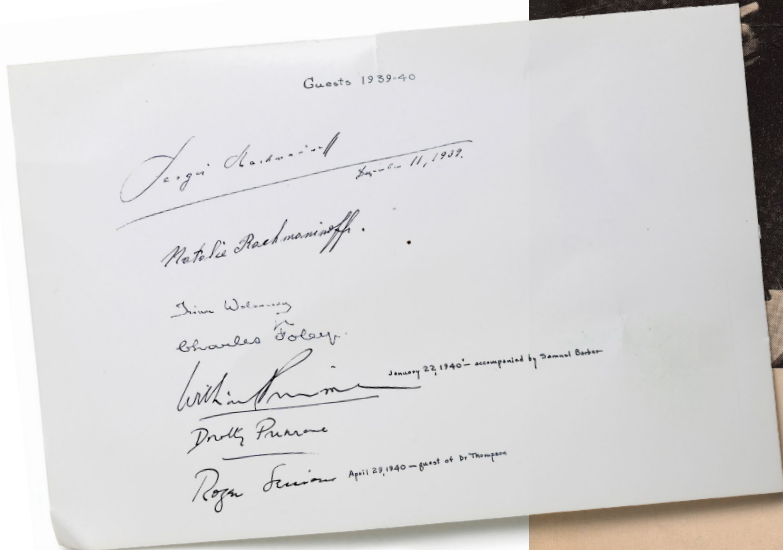 Guests 1939-40
Sergei Rachmaninoff
December 11, 1939.
Natalie Rachmaninoff.
Irina Wolkonsky
Charles Foley.
William Primrose January 22, 1940 — accompanied by Samuel Barber
Dorothy Primrose
Roger Sessions April 29, 1940 — guest of Dr Thompson